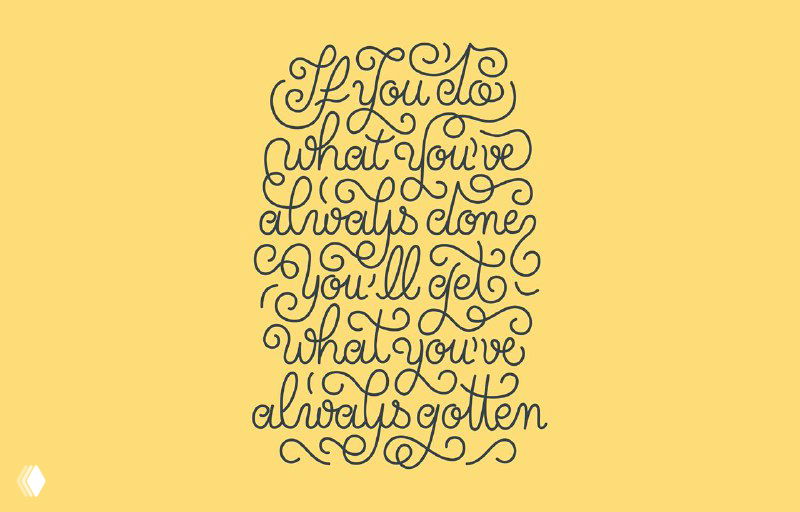 If you do
what you've
always done,
You'll get
what you've
always gotten